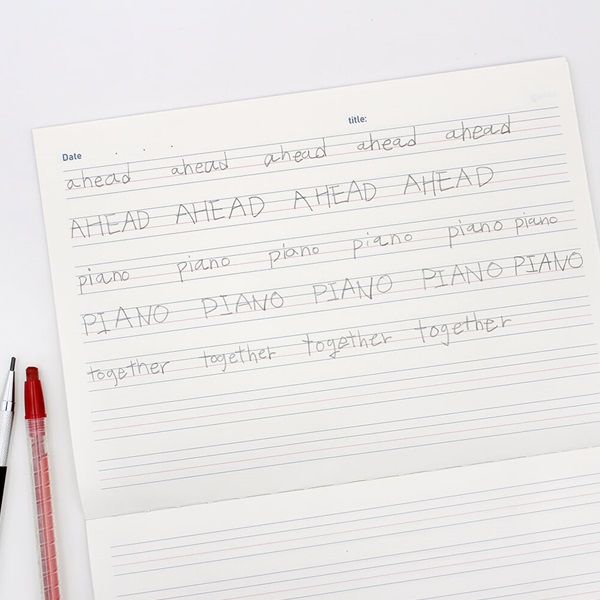 Date title:
ahead ahead ahead ahead ahead
AHEAD AHEAD AHEAD AHEAD
piano piano piano piano piano piano
PIANO PIANO PIANO PIANO PIANO
together together together together